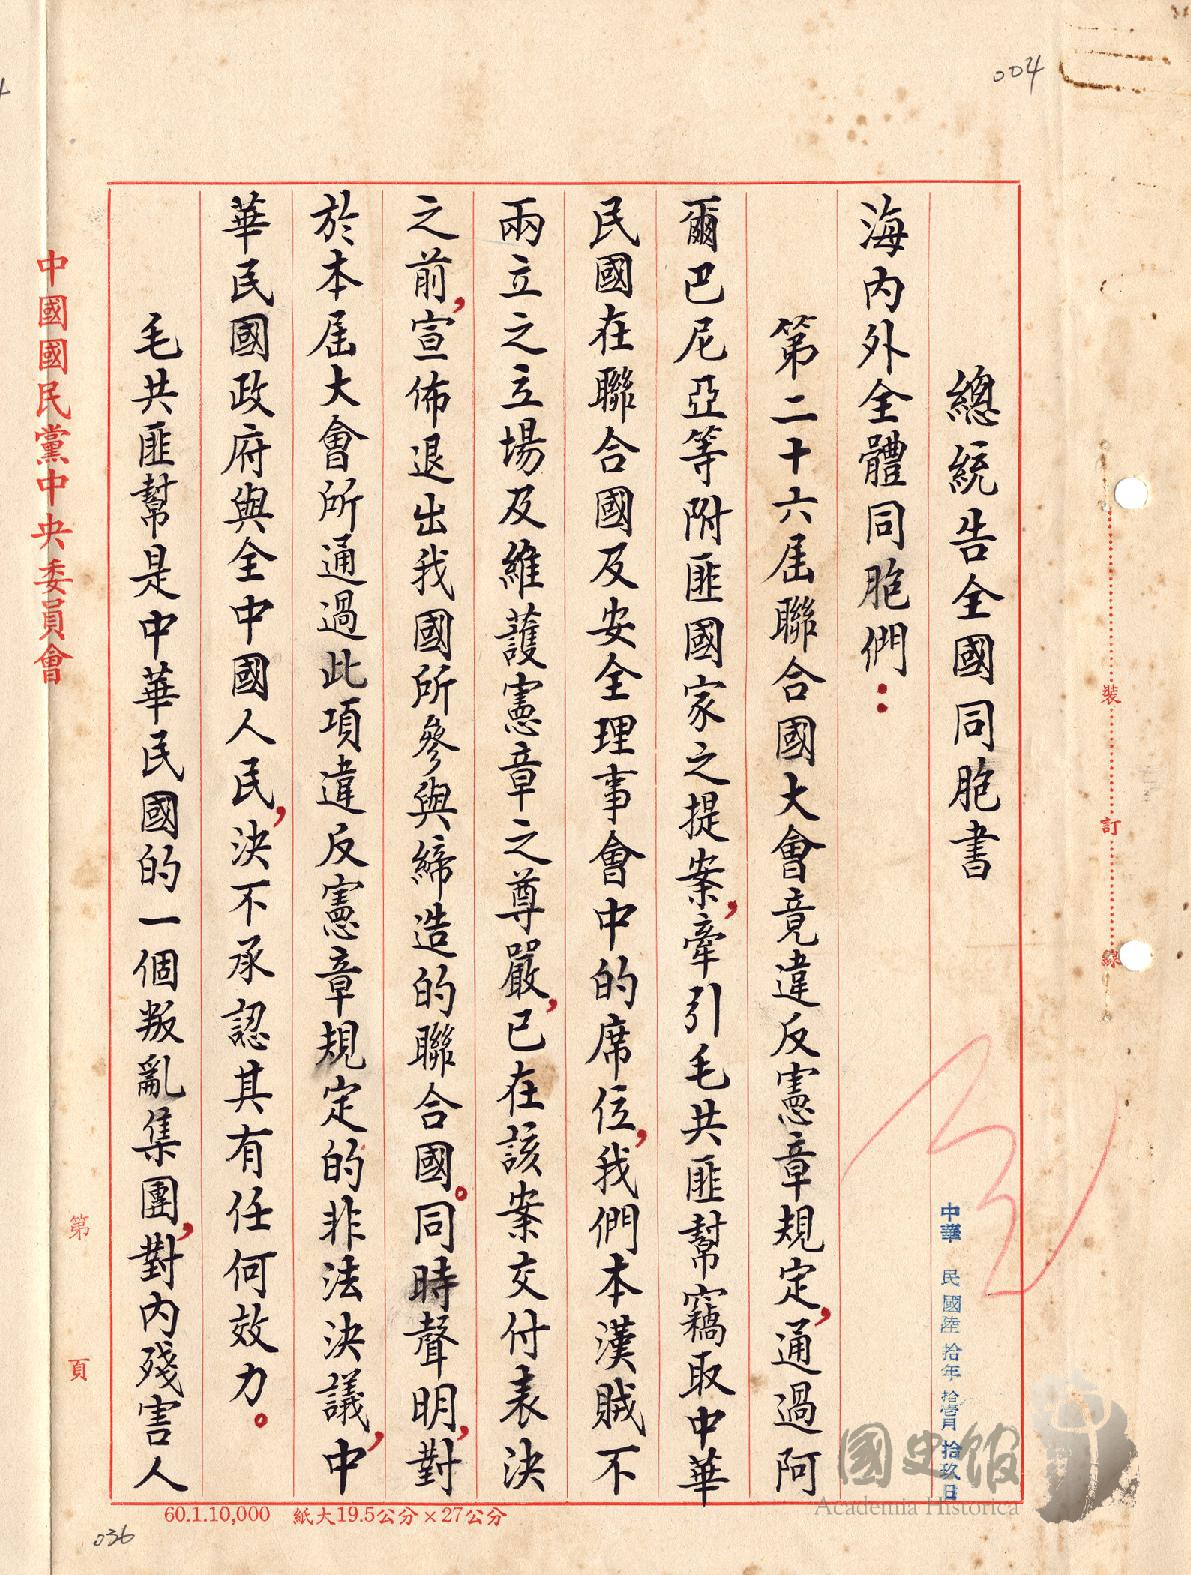 004
總統告全國同胞書
海內外全體同胞們：
第二十六屆聯合國大會竟違反憲章規定，通過阿
爾巴尼亞等附匪國家之提案，牽引毛共匪幫竊取中華
民國在聯合國及安全理事會中的席位，我們本漢賊不
兩立之立場及維護憲章之尊嚴，已在該案交付表決
之前，宣佈退出我國所參與締造的聯合國。同時聲明，對
於本屆大會所通過此項違反憲章規定的非法決議，中
華民國政府與全中國人民，決不承認其有任何效力。
毛共匪幫是中華民國的一個叛亂集團，對內殘害人
中國國民黨中央委員會
第 頁
裝 訂 線
中華民國陸拾年拾壹月拾玖日
國史館
Academia Historica
60.1.10,000 紙大19.5公分×27公分
036